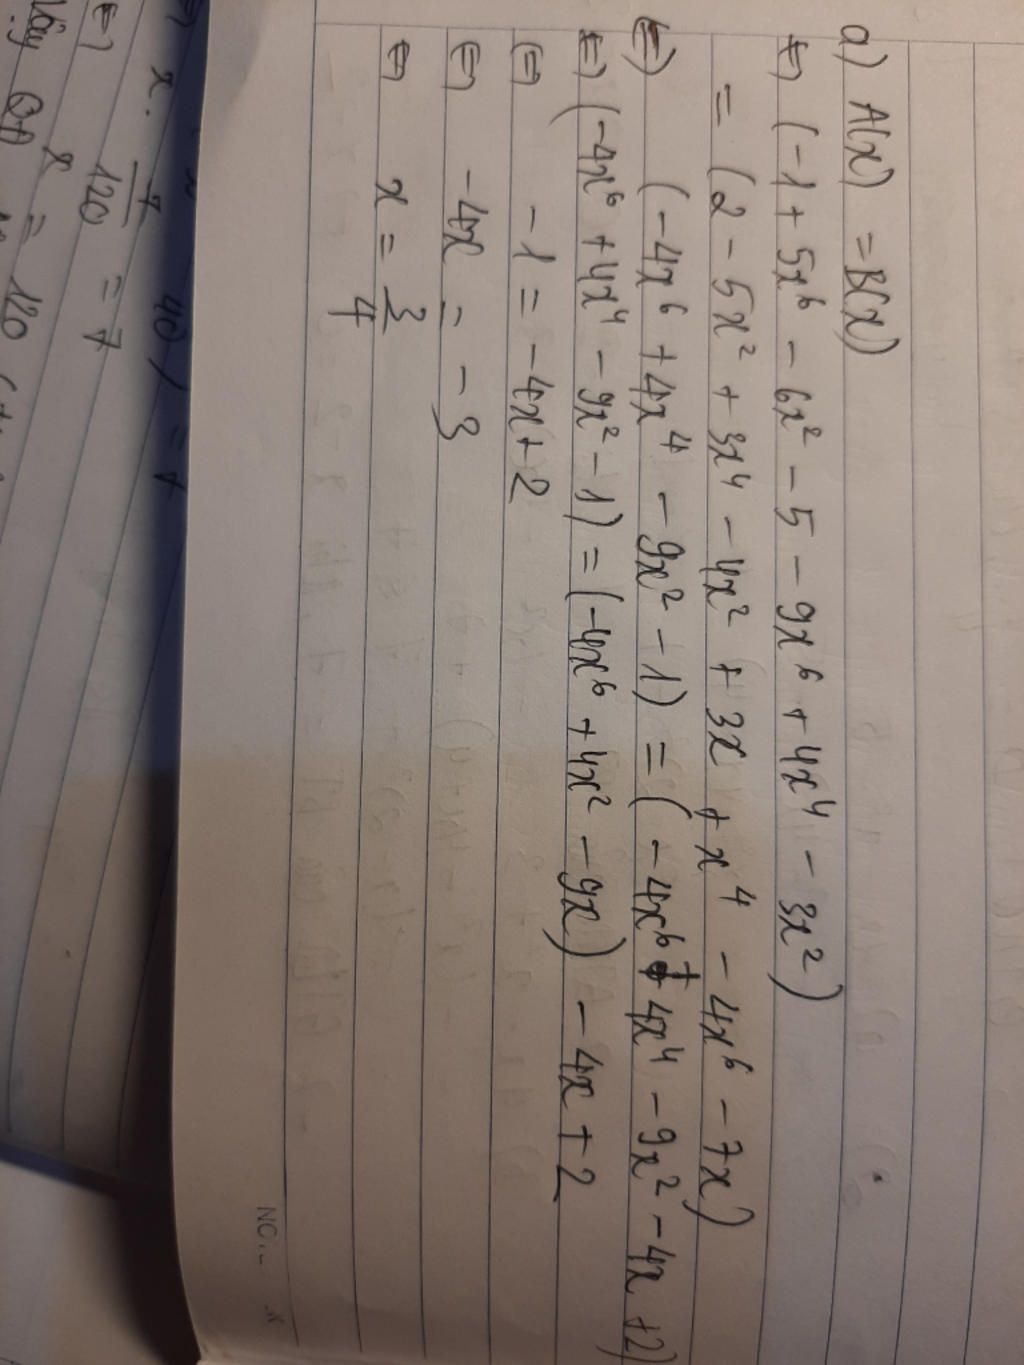 a) A(x) = B(x)
⇔ (-1 + 5x⁶ - 6x² - 5 - 9x⁶ + 4x⁴ - 3x²)
= (2 - 5x² + 3x⁴ - 4x² + 3x + x⁴ - 4x⁶ - 7x)
⇔ (-4x⁶ + 4x⁴ - 9x² - 1) = (-4x⁶ + 4x⁴ - 9x² - 4x + 2)
⇔ (-4x⁶ + 4x⁴ - 9x² - 1) = (-4x⁶ + 4x² - 9x) - 4x + 2
⇔ -1 = -4x + 2
⇔ -4x = -3
⇔ x = 3/4
40) = 7
x. 7/120 = 7
⇔ x = 120
Vậy